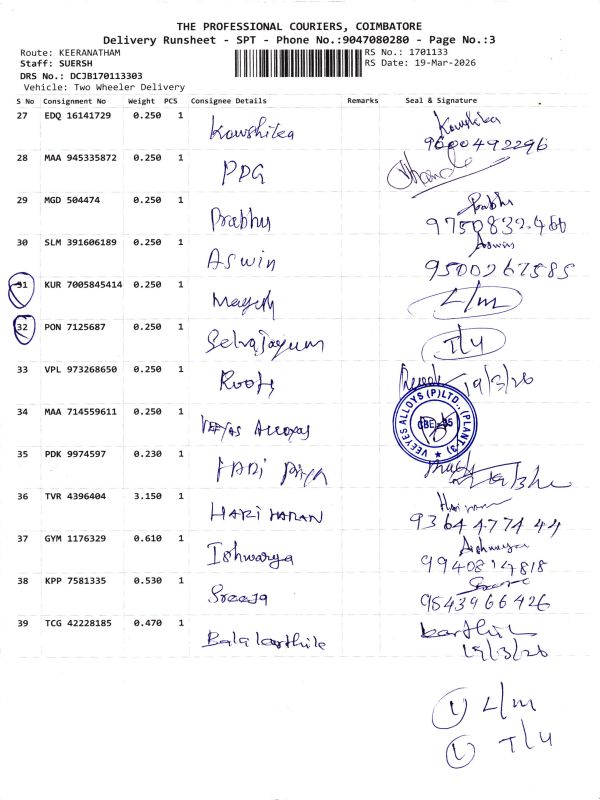 THE PROFESSIONAL COURIERS, COIMBATORE
Delivery Runsheet - SPT - Phone No.:9047080280 - Page No.:3
Route: KEERANATHAM RS No.: 1701133
Staff: SUERSH RS Date: 19-Mar-2026
DRS No.: DCJB170113303
Vehicle: Two Wheeler Delivery
S No Consignment No Weight PCS Consignee Details Remarks Seal & Signature
27 EDQ 16141729 0.250 1 Kowshika Kowshika
9600492296
28 MAA 945335872 0.250 1 PDG
29 MGD 504474 0.250 1 Prabhu Prabhu
30 SLM 391606189 0.250 1 Aswin Aswin
9500267585
31 KUR 7005845414 0.250 1 L/m
32 PON 7125687 0.250 1 I/4
33 VPL 973268650 0.250 1 Roots 19/3/26
34 MAA 714559611 0.250 1 VEEYES ALLOYS
VEEYES ALLOYS (P) LTD., (PLANT-3)
35 PDK 9974597 0.230 1
36 TVR 4396404 3.150 1 HARI HARAN Hariharan
9364477444
37 GYM 1176329 0.610 1 Ishwarya
9940814818
38 KPP 7581335 0.530 1 Sreeja
9543966426
39 TCG 42228185 0.470 1 Bala karthik karthik
19/3/26
L/m
I/4